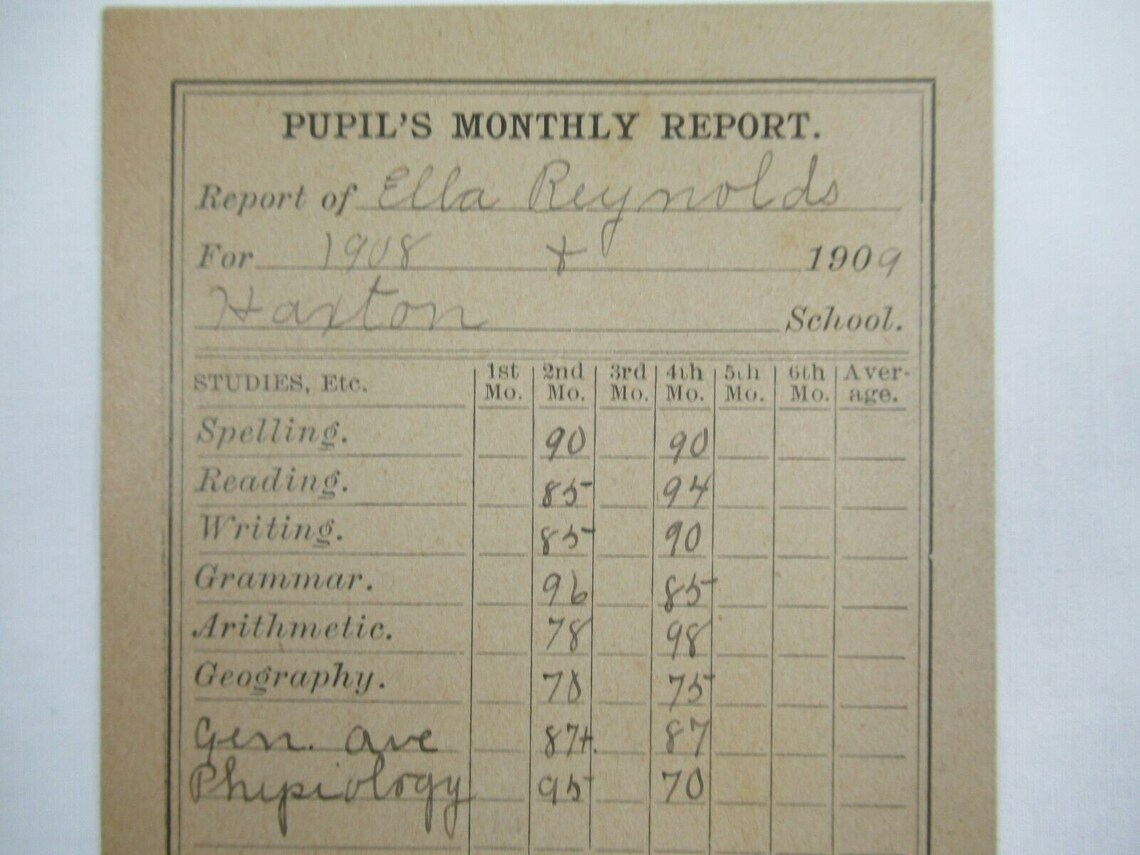 PUPIL'S MONTHLY REPORT.
Report of Ella Reynolds
For 1908 + 1909
Haxton School.
STUDIES, Etc. 1st Mo. 2nd Mo. 3rd Mo. 4th Mo. 5th Mo. 6th Mo. Average.
Spelling. 90 90
Reading. 85 94
Writing. 85 90
Grammar. 96 85
Arithmetic. 78 98
Geography. 78 75
Gen. ave 87+ 87
Physiology 95 70